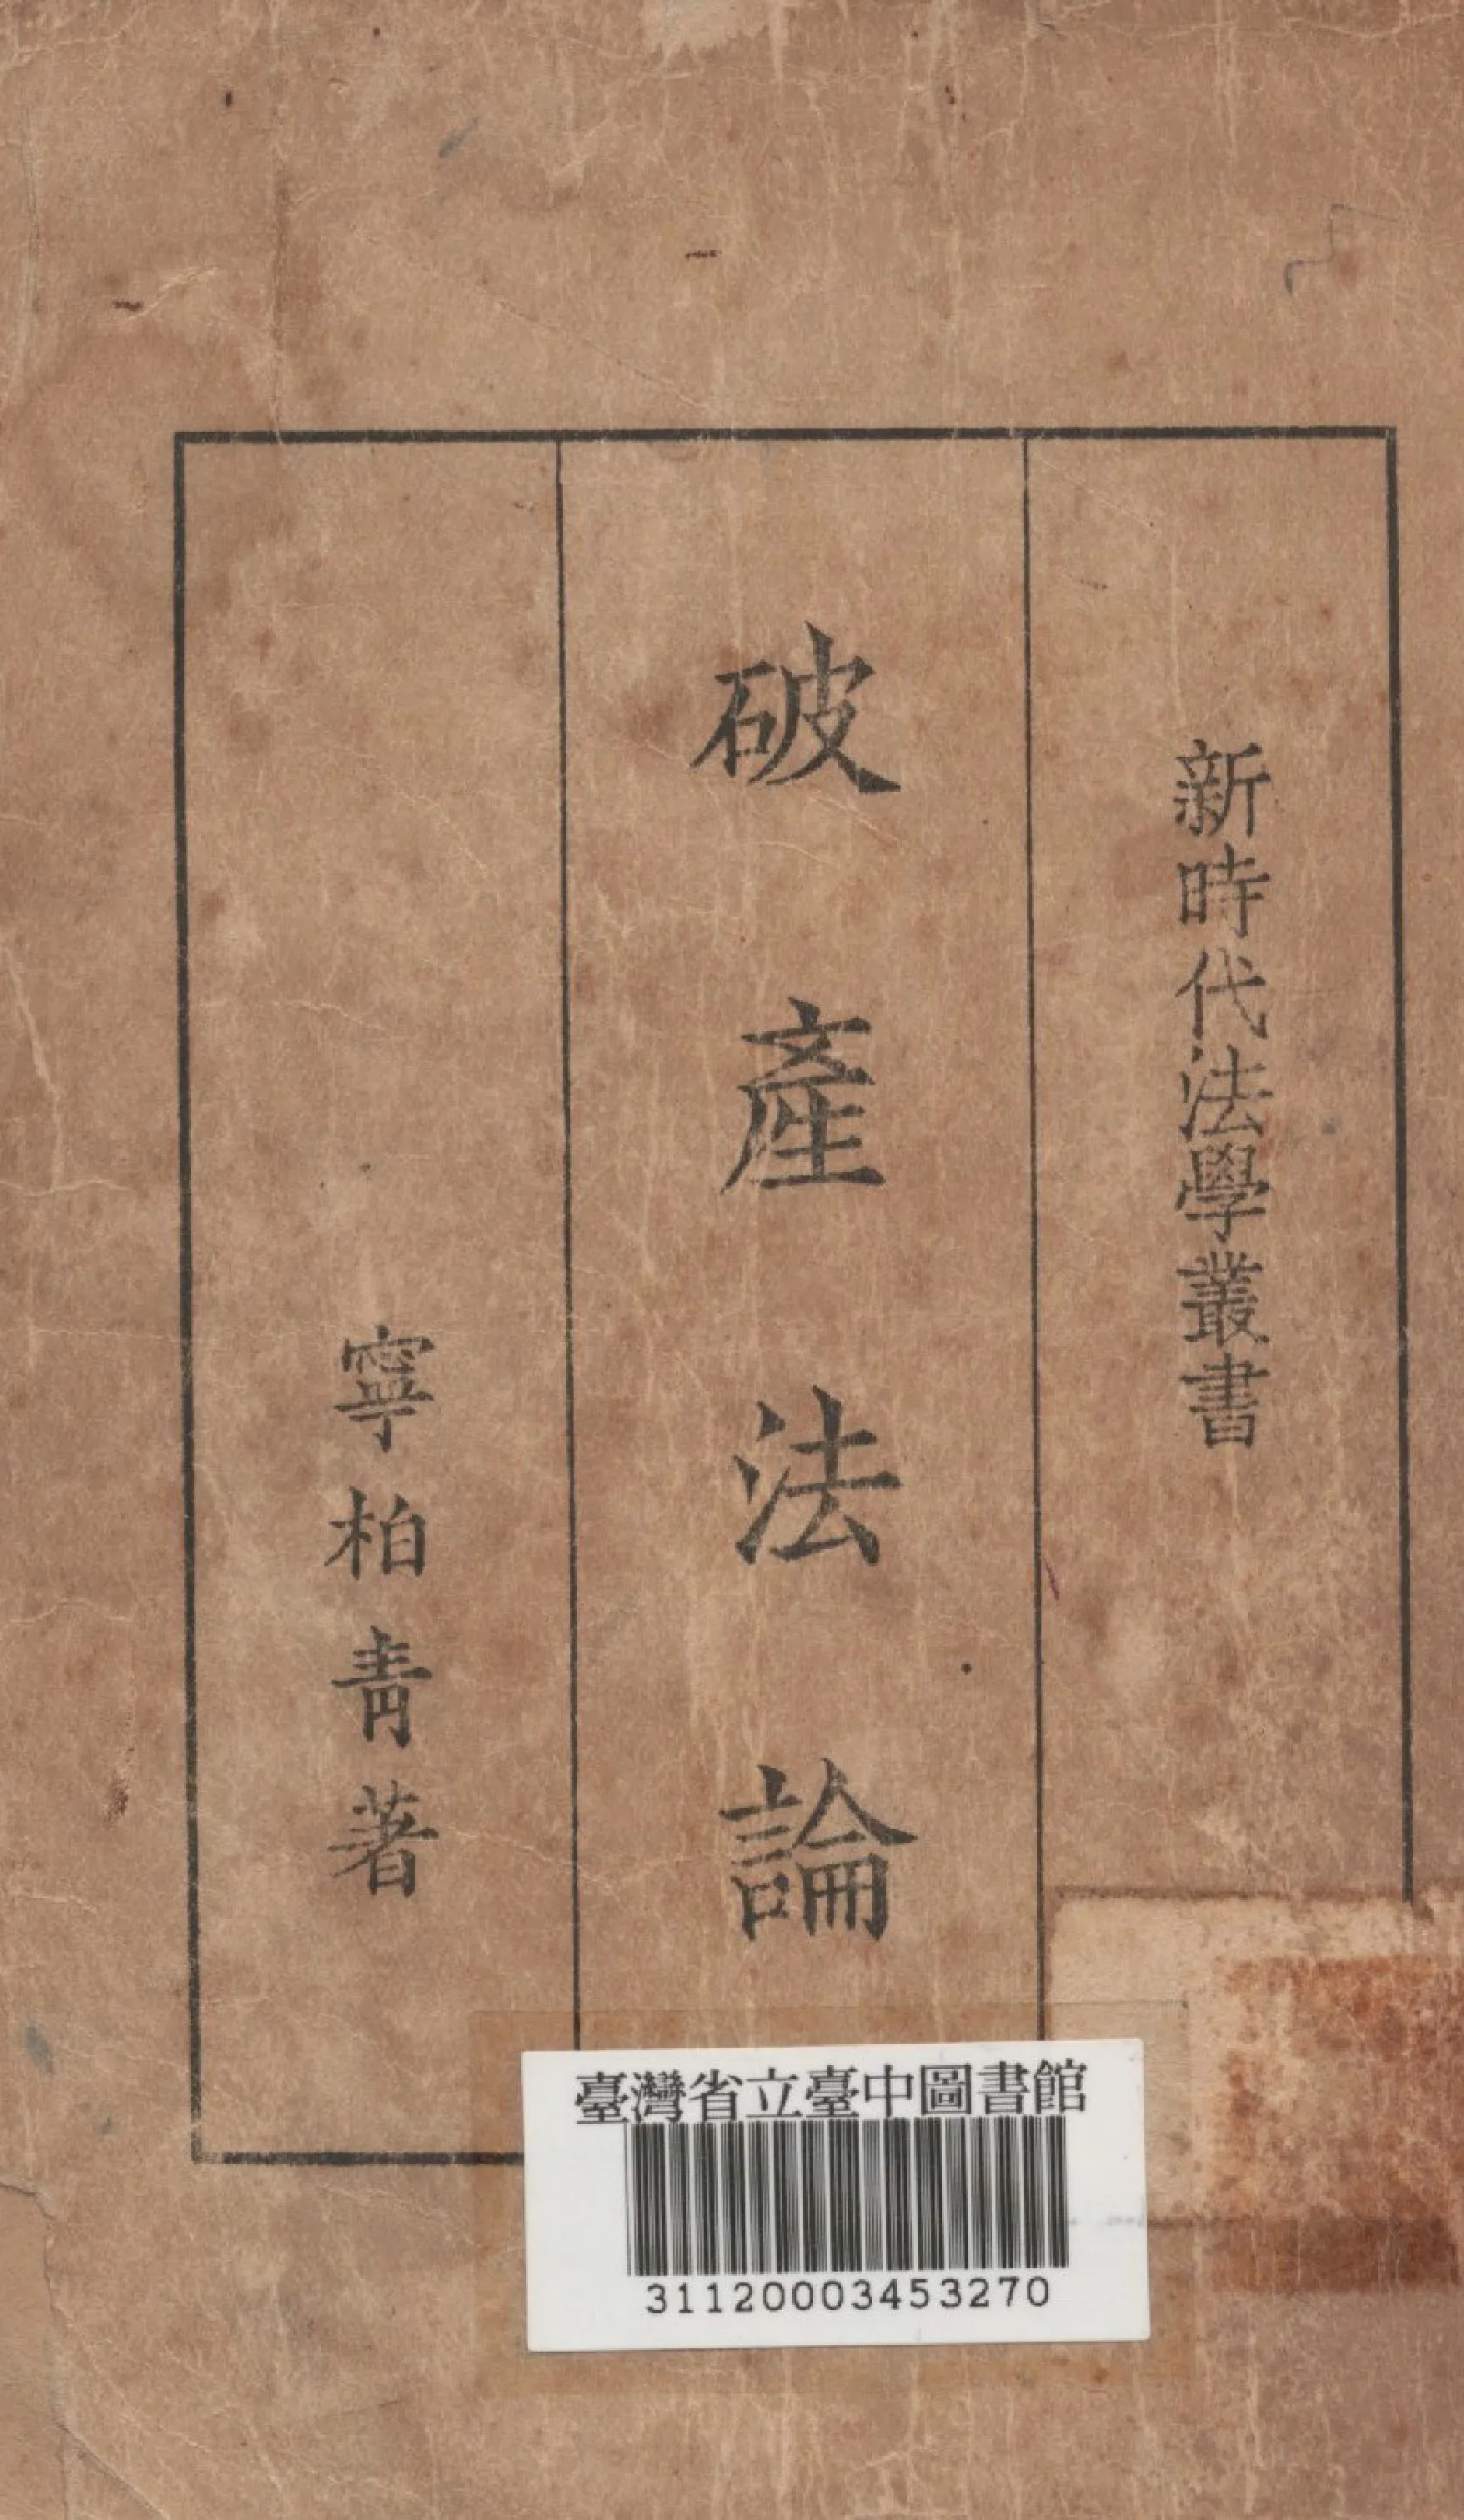 新時代法學叢書
破產法論
寧柏青著
臺灣省立臺中圖書館
31120003453270